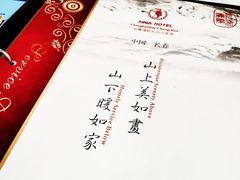 HNA HOTEL
Changbaishan Changchun
中国 长春
山上美如畫
Picturesque Scenery Above
山下暖如家
Homely Service Below
Service